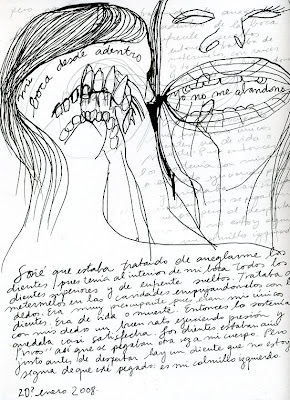 mi boca desde adentro
yo no me abandono
Soñé que estaba tratando de arreglarme los
dientes, pues tenía al interior de mi boca todos los
dientes superiores y de enfrente sueltos. Trataba de
meterlos en las cavidades empujándolos con los
dedos. Era muy preocupante pues eran mis únicos
dientes. Era de vida o muerte. Entonces lo sostenía
con mis dedos un buen rato ejerciendo presión y
quedaba casi satisfecha. Los dientes estaban aún
"vivos" así que se pegaban otra vez a mi cuerpo. Pero
justo antes de despertar hay un diente que no estoy
segura de que esté pegado: es mi colmillo izquierdo.
20. enero 2008.